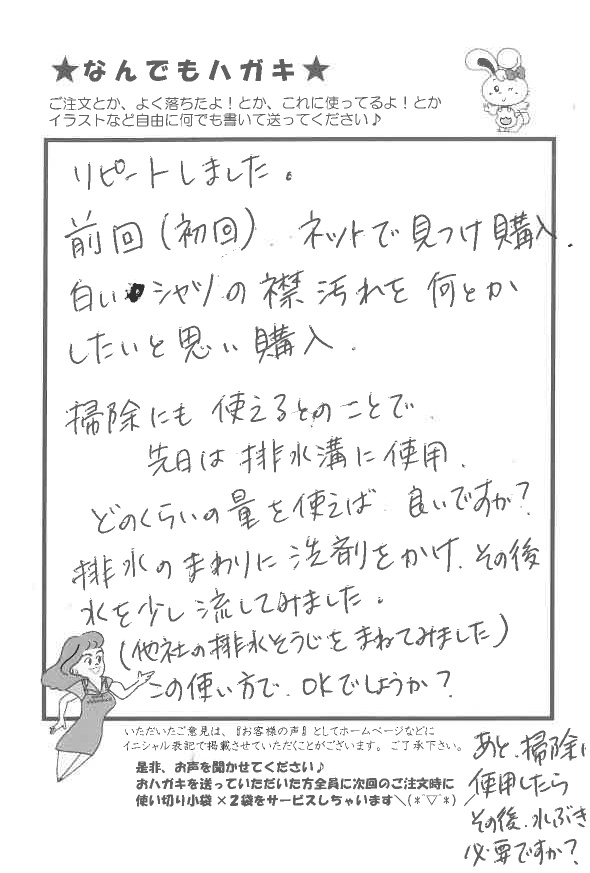 ★なんでもハガキ★
ご注文とか、よく落ちたよ！とか、これに使ってるよ！とか
イラストなど自由に何でも書いて送ってください♪
リピートしました。
前回(初回)、ネットで見つけ購入.
白いシャツの襟汚れを何とか
したいと思い購入.
掃除にも使えるとのことで.
先日は排水溝に使用.
どのくらいの量を使えば良いですか?
排水のまわりに洗剤をかけ、その後
水を少し流してみました。
(他社の排水そうじをまねてみました)
この使い方で、OKでしょうか?
いただいたご意見は、『お客様の声』としてホームページなどに
イニシャル表記で掲載させていただくことがございます。ご了承下さい。
是非、お声を聞かせてください♪
おハガキを送っていただいた方全員に次回のご注文時に
使い切り小袋×２袋をサービスしちゃいます＼(*ˆ▽ˆ*)／
あと、掃除に
使用したら
その後、水ぶき
必要ですか?